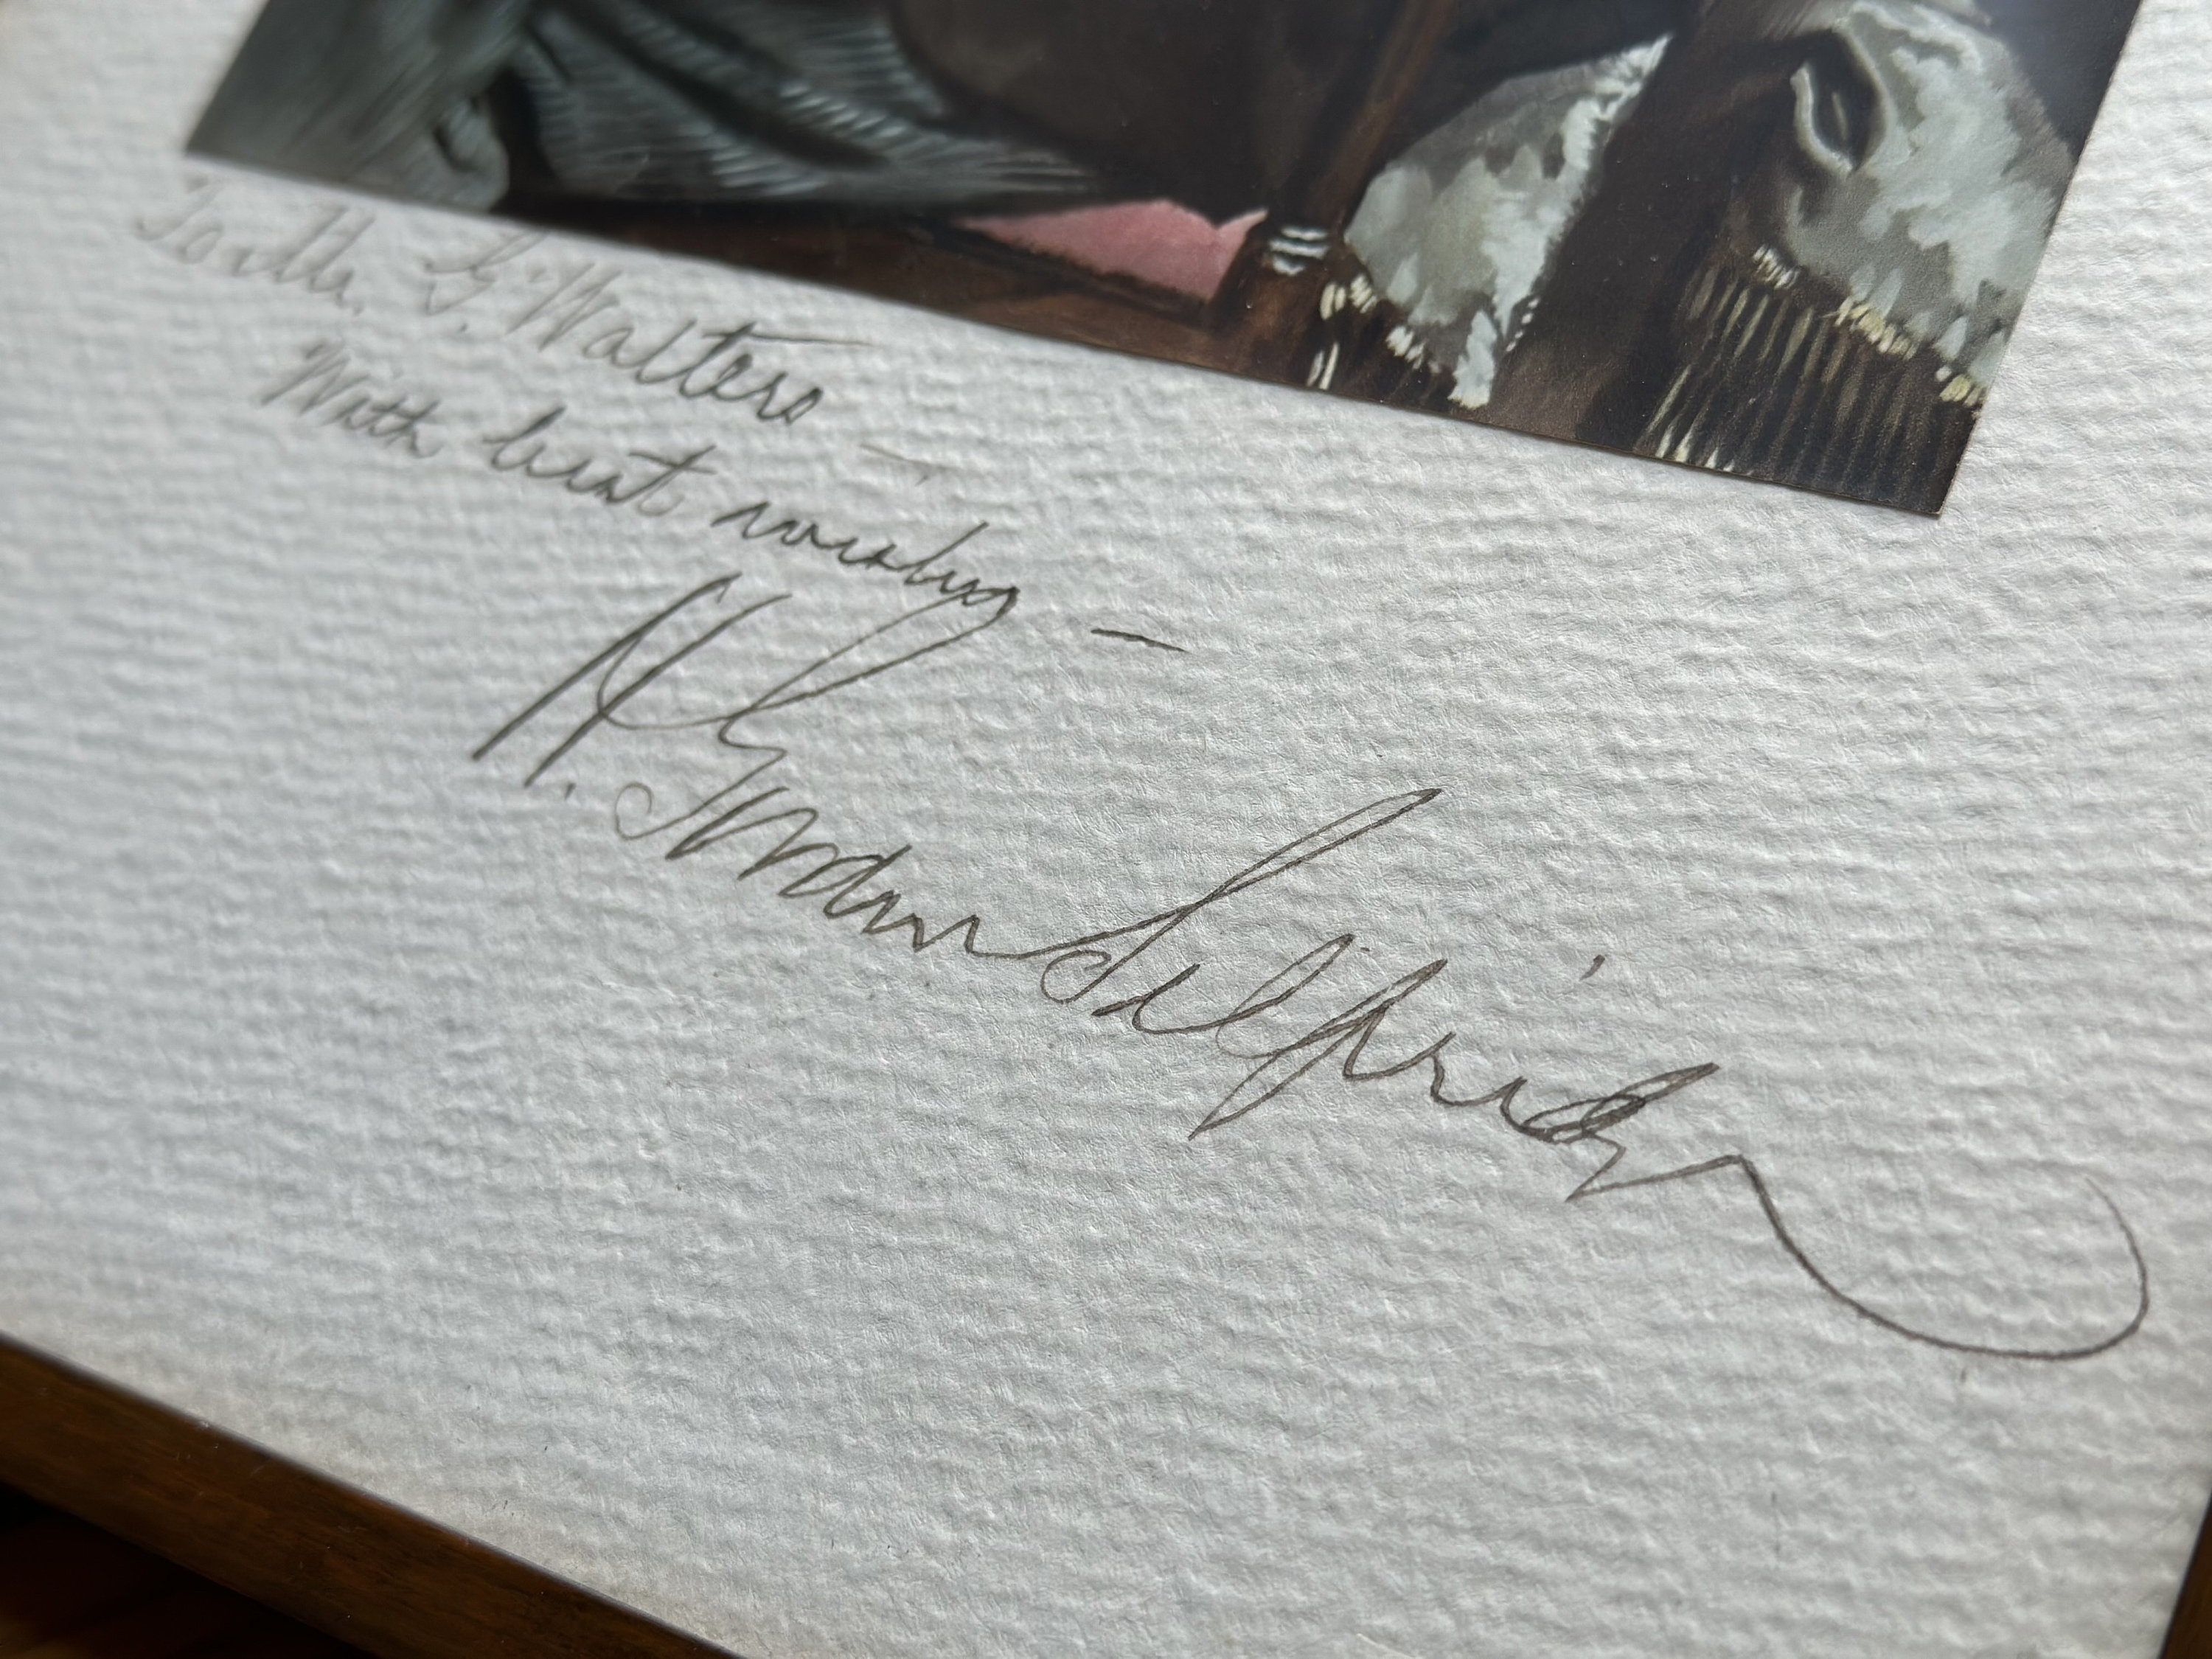 To the G. Walters —
With best wishes —
H. Gordon Selfridge